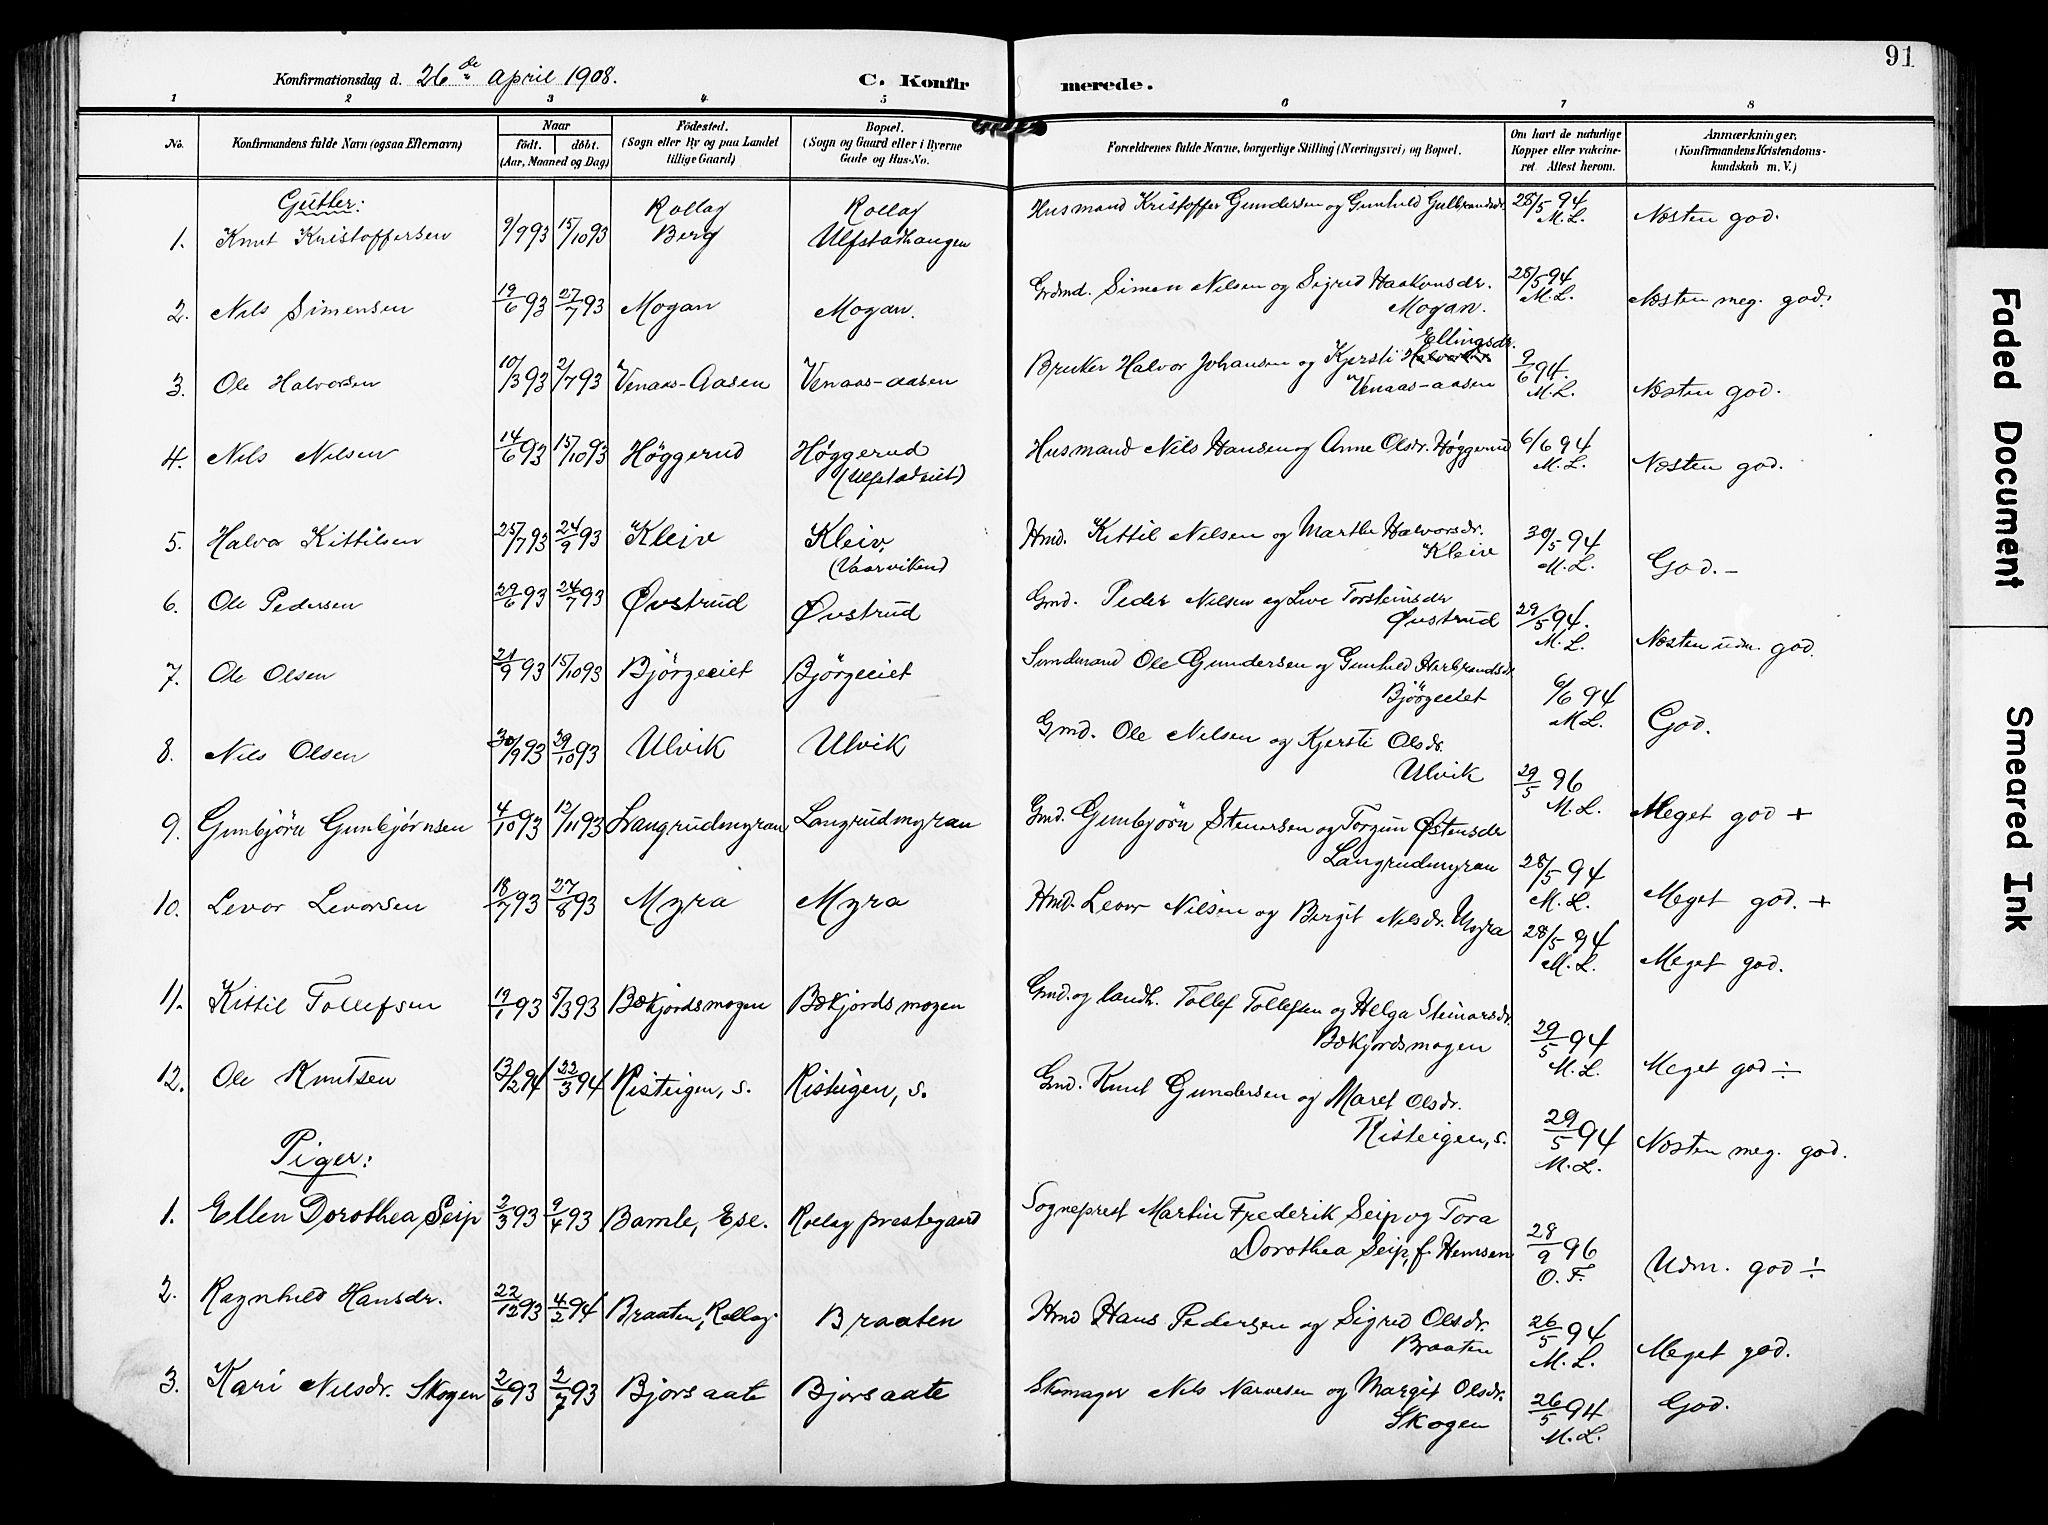 91
Konfirmationsdag d. 26de April 1908.
C. Konfirmerede.
1 2 3 4 5 6 7 8
No.
Konfirmandens fulde Navn (ogsaa Efternavn)
Naar
født. døbt.
(Aar, Maaned og Dag)
Fødested.
(Sogn eller By og paa Landet
tillige Gaard)
Bopæl.
(Sogn og Gaard eller i Byerne
Gade og Hus-No.
Forældrenes fulde Navne, borgerlige Stilling (Næringsvei) og Bopæl.
Om havt de naturlige
Kopper eller vakcine-
ret. Attest herom.
Anmærkninger.
(Konfirmandens Kristendoms-
kundskab m. V.)
Gutter:
1. Knut Kristoffersen 9/9 93 15/10 93 Rollag Berg Rollag Ulfstadhaugen Husmand Kristoffer Gundersen og Gunhild Gulbrandsdr. 28/5 94 M.L. Næsten god.
2. Nils Simensen 19/6 93 27/7 93 Mogan Mogan. Grdmd. Simen Nilsen og Sigrid Haakonsdr. Mogan. 28/5 94 M.L. Næsten meg. god.
3. Ole Halvorsen 10/3 93 2/7 93 Venaas-Aasen Venaas-aasen Bruker Halvor Johansen og Kjersti Ellingsdr. Venaas-aasen 9/6 94. M.L. Næsten god.
4. Nils Nilsen 14/6 93 15/10 93 Höggerud Høggerud (Ulfstadeiet) Husmand Nils Hansen og Anne Olsdr. Høggerud 6/6 94 M.L. Næsten god.
5. Halvor Kittilsen 25/7 93 24/9 93 Kleiv Kleiv. (Vaarviken) Hmd. Kittil Nilsen og Marthe Halvorsdr. Kleiv 30/5 94 M.L. God. –
6. Ole Pedersen 29/6 93 24/7 93 Øvstrud Øvstrud Gmd. Peder Nilsen og Live Torsteinsdr Øvstrud 29/5 94. M.L. Næsten udm. god.
7. Ole Olsen 21/9 93 15/10 93 Bjørgeeiet Bjørgeeiet Ole Gundersen og Gunhild Herbrandsdr Bjørgeeiet 6/6 94 M.L. God.
8. Nils Olsen 30/9 93 29/10 93 Ulvik Ulvik Gmd. Ole Nilsen og Kjersti Olsdr. Ulvik 29/5 96 M.L. Meget god +
9. Gunbjörn Gunbjørnsen 4/10 93 12/11 93 Langrudmyran Langrudmyran Gmd. Gunbjörn Steinarsen og Torgun Østensdr Langrudmyran 28/5 94 M.L. Meget god. +
10. Levor Levorsen 18/7 93 27/8 93 Myra Myra Hmd. Levor Nilsen og Bergit Nilsdr. Myra 28/5 94 M.L. Meget god.
11. Kittil Tollefsen 19/1 93 5/3 93 Bækjordsmogen Bækjordsmogen Gmd. og landh. Tollef Tollefsen og Helga Steinarsdr. Bækjordsmogen 29/5 94 M.L. Meget god ÷
12. Ole Knutsen 13/2 94 22/3 94 Risteigen, s. Risteigen, s. Gmd. Knut Gundersen og Maret Olsdr. Risteigen, s. 29/5 94 M.L. Næsten meg. god.
Piger:
1. Ellen Dorothea Seip 2/3 93 9/4 93 Bamle, Ese. Rollag prestegaard Sogneprest Martin Frederik Seip og Tora Dorothea Seip, f. Hemsen 28/9 96 O.F. Udm. god ÷
2. Ragnhild Hansdr. 22/12 93 4/2 94 Braaten, Rollag Braaten Hmd Hans Pedersen og Sigrid Olsdr. Braaten 26/5 94 M.L. Meget god.
3. Kari Nilsdr. Skogen 2/6 93 2/7 93 Bjørsaate Bjørsaate Skomager Nils Narvesen og Margit Olsdr. Skogen 26/5 94 M.L. God.
Faded Document
Smeared Ink